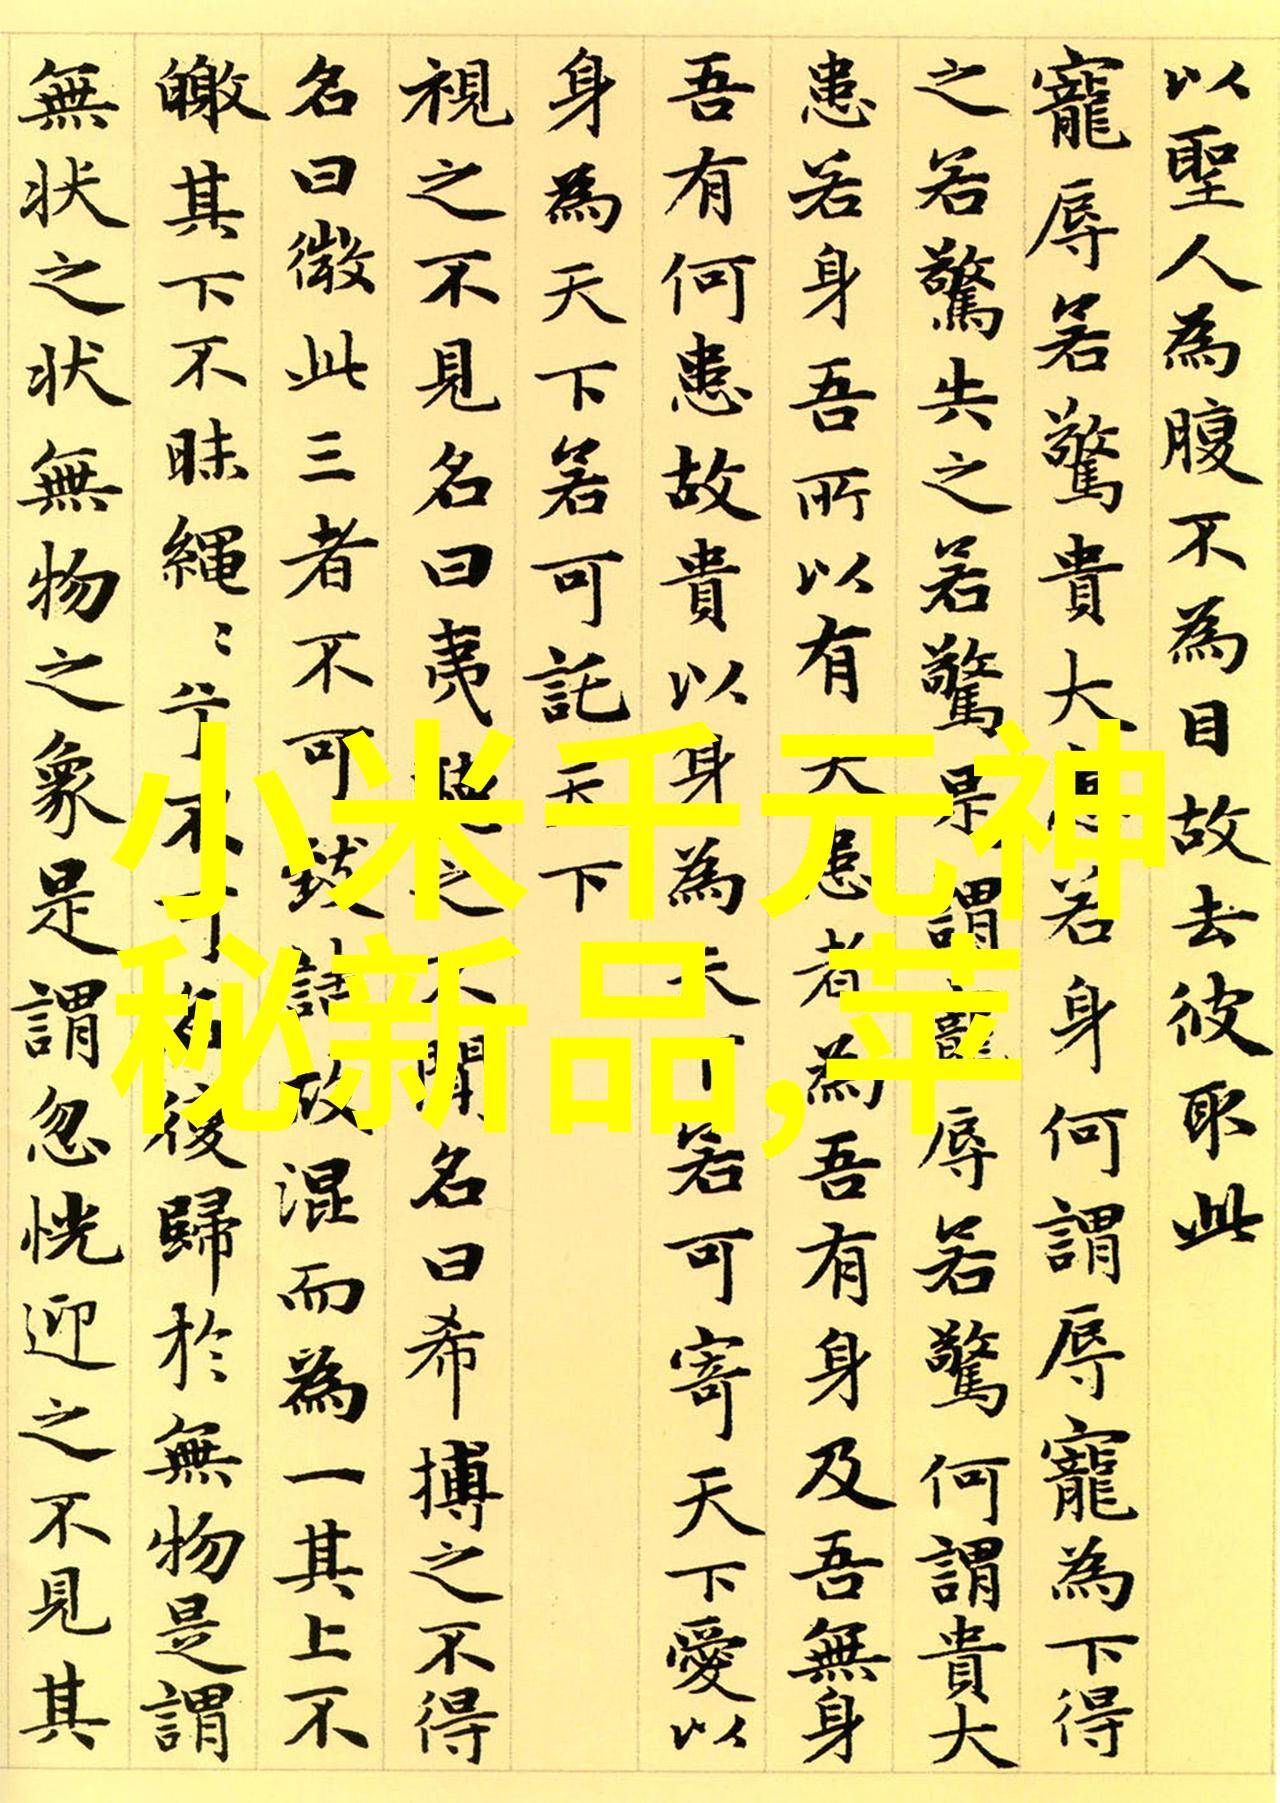 以聖人為腹不為目故去彼取此
寵辱若驚貴大患若身何謂辱寵為下得
之若驚失之若驚是謂寵辱若驚何謂貴大
患若身吾所以有大患者為吾有身及吾無身
吾有何患故貴以身為天下若可寄天下愛以
身為天下若可託天下
視之不見名曰夷聽之不聞名曰希搏之不得
名曰微此三者不可致詰故混而為一其上不
皦其下不昧繩〻兮不可名復歸於無物是謂
無状之状無物之象是謂忽恍迎之不見其
小米千元神
秘新品,苹